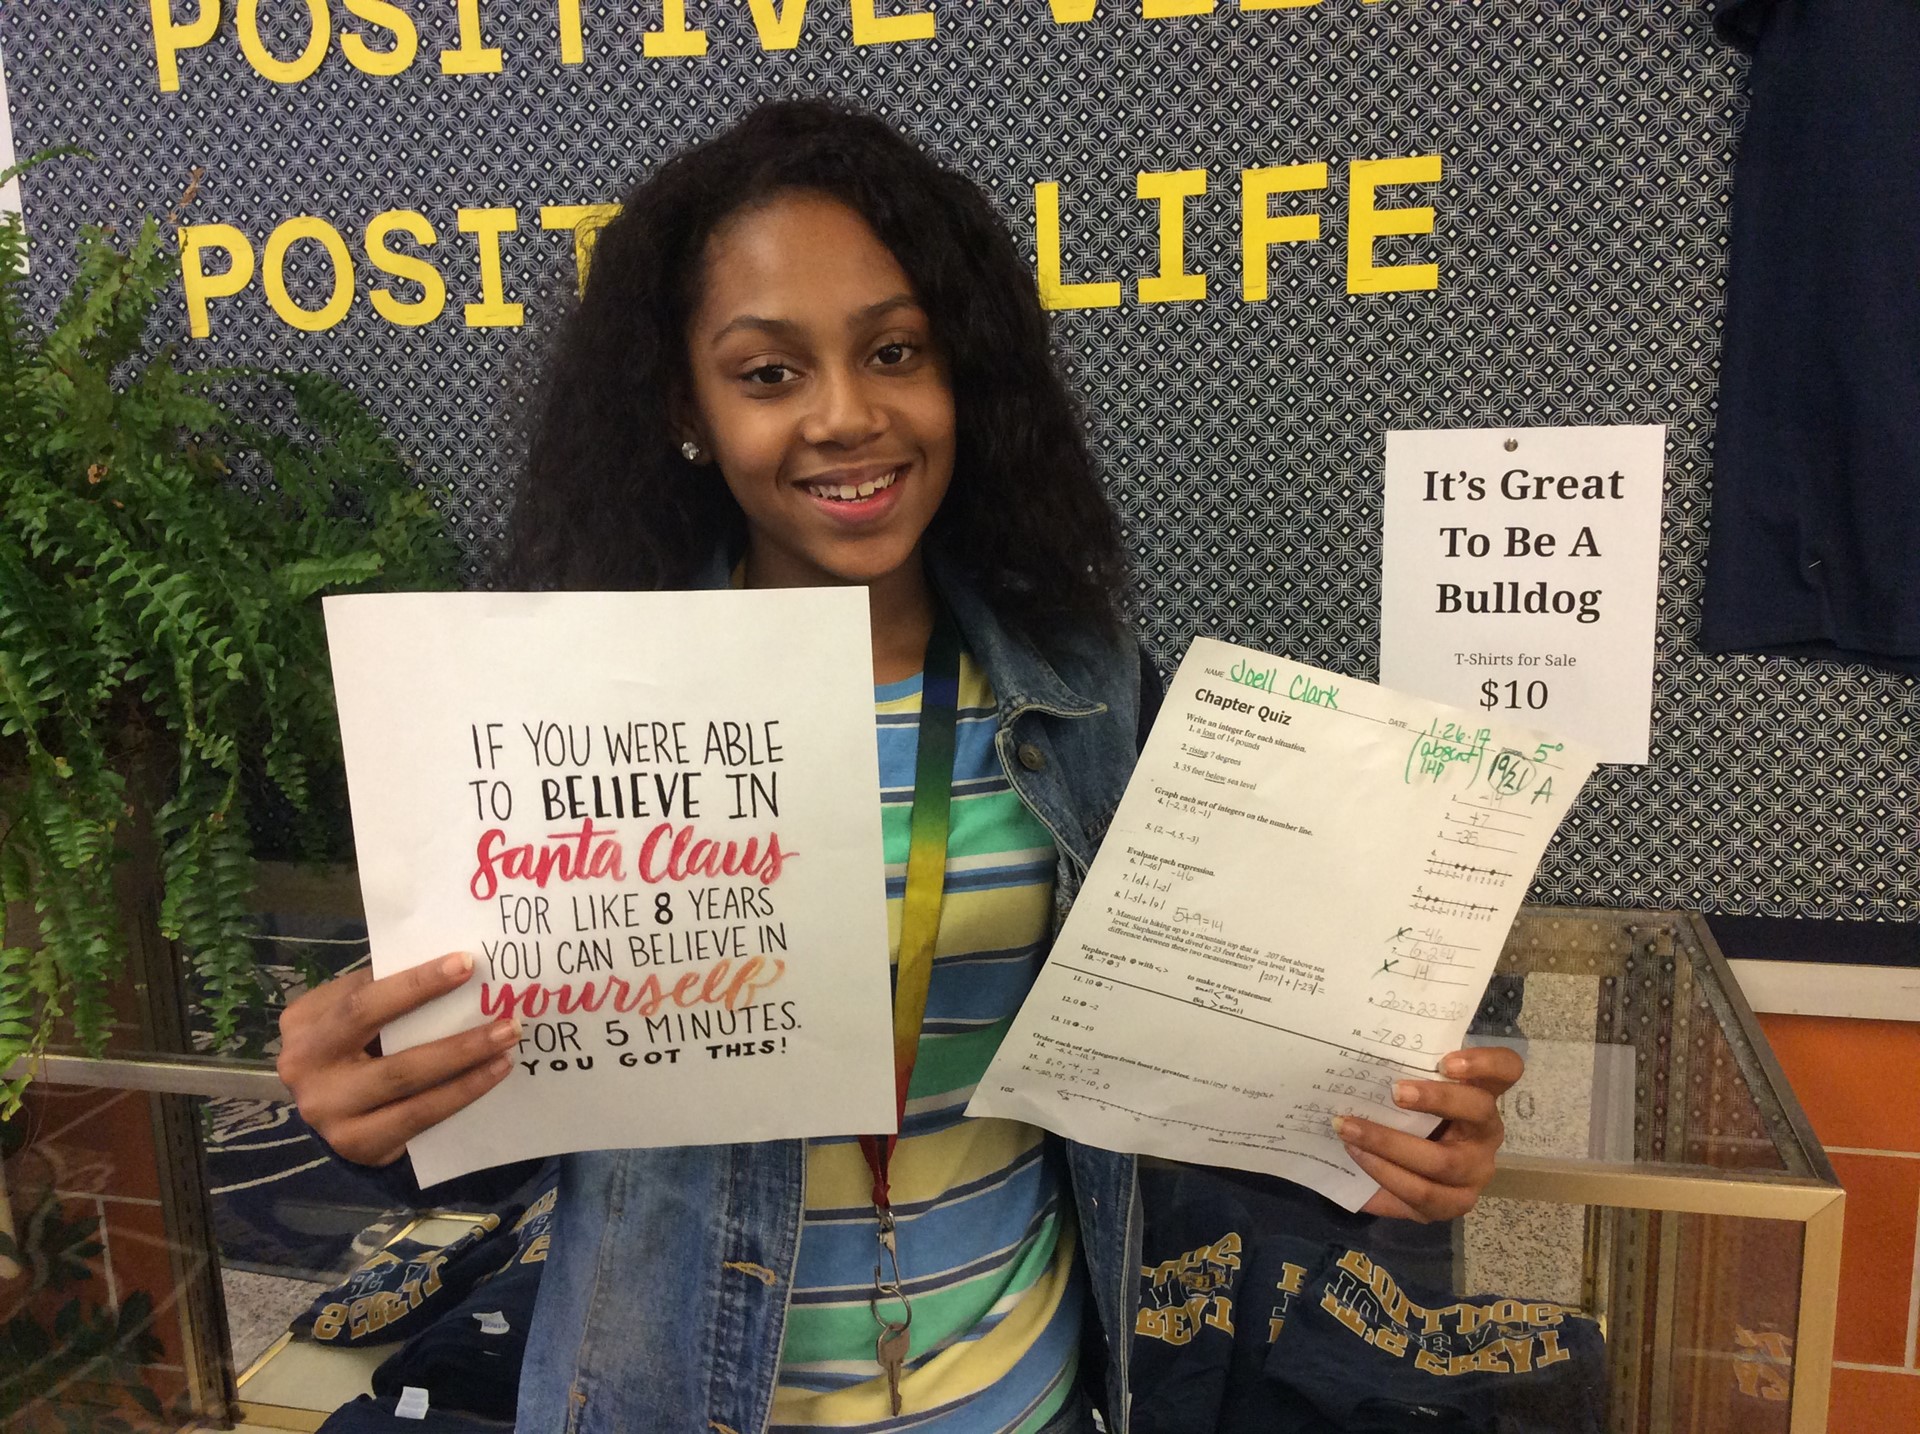 POSITIVE VIB
POSIT LIFE
It's Great
To Be A
Bulldog
T-Shirts for Sale
$10
IF YOU WERE ABLE
TO BELIEVE IN
Santa Claus
FOR LIKE 8 YEARS
YOU CAN BELIEVE IN
yourself
FOR 5 MINUTES.
YOU GOT THIS!
NAME Joell Clark
DATE 1.26.17 5°
(absent) 19/21 A
Chapter Quiz
Write an integer for each situation.
1. a loss of 14 pounds
2. rising 7 degrees
3. 35 feet below sea level
Graph each set of integers on the number line.
4. {-2, 3, 0, -1}
5. {2, -4, 5, -3}
Evaluate each expression.
6. |-46| -46
7. |6| + |-2|
8. |-5| + |9|
5+9=14
9. Manuel is hiking up to a mountain top that is 207 feet above sea
level. Stephanie scuba dived to 23 feet below sea level. What is the
difference between these two measurements? |207| + |-23| =
Replace each ● with <, > to make a true statement.
small < big
big > small
10. -7 ● 3
11. 10 ● -1
12. 0 ● -2
13. 18 ● -19
Order each set of integers from least to greatest. smallest to biggest
15. 8, 0, -4, -2
16. -20, 15, 5, -10, 0
102
2. +7
3. -35
-46
14
207+23=230